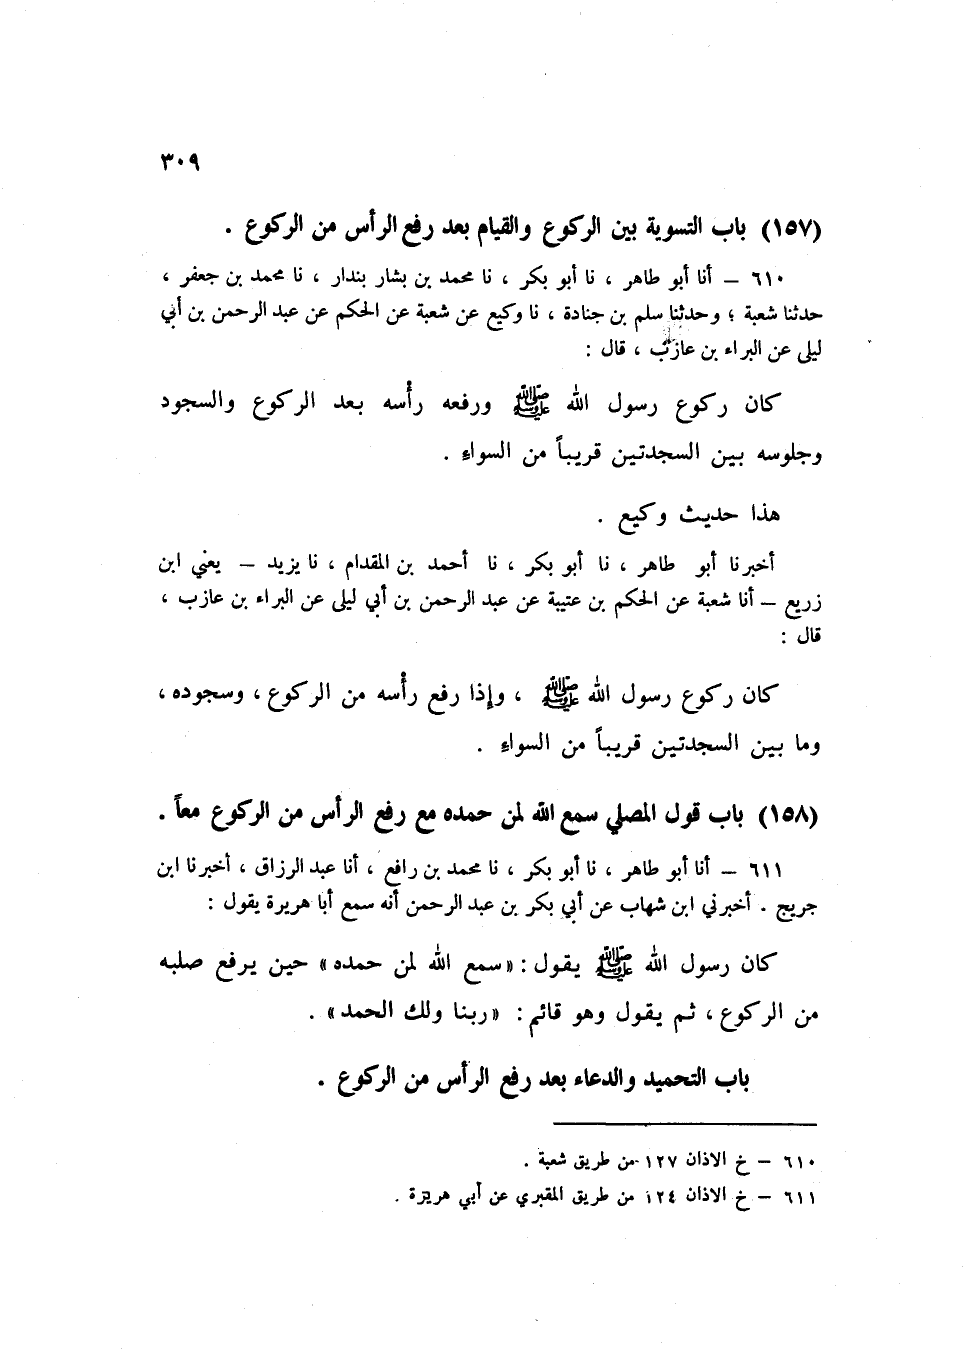 ٣٠٩
(١٥٧) باب التسوية بين الركوع والقيام بعد رفع الرأس من الركوع .
٦١٠ – أنا أبو طاهر ، نا أبو بكر ، نا محمد بن بشار بندار ، نا محمد بن جعفر ،
حدثنا شعبة ؛ وحدثنا سلم بن جنادة ، نا وكيع عن شعبة عن الحكم عن عبد الرحمن بن أبي
ليلى عن البراء بن عازب ، قال :
كان ركوع رسول الله ﷺ ورفعه رأسه بعد الركوع والسجود
وجلوسه بين السجدتين قريباً من السواء .
هذا حديث وكيع .
أخبرنا أبو طاهر ، نا أبو بكر ، نا أحمد بن المقدام ، نا يزيد – يعني ابن
زريع – أنا شعبة عن الحكم بن عتيبة عن عبد الرحمن بن أبي ليلى عن البراء بن عازب ،
قال :
كان ركوع رسول الله ﷺ ، وإذا رفع رأسه من الركوع ، وسجوده ،
وما بين السجدتين قريباً من السواء .
(١٥٨) باب قول المصلي سمع الله لمن حمده مع رفع الرأس من الركوع معاً .
٦١١ – أنا أبو طاهر ، نا أبو بكر ، نا محمد بن رافع ، أنا عبد الرزاق ، أخبرنا ابن
جريج . أخبرني ابن شهاب عن أبي بكر بن عبد الرحمن أنه سمع أبا هريرة يقول :
كان رسول الله ﷺ يقول : «سمع الله لمن حمده» حين يرفع صلبه
من الركوع ، ثم يقول وهو قائم : «ربنا ولك الحمد» .
باب التحميد والدعاء بعد رفع الرأس من الركوع .
٦١٠ – خ الاذان ١٢٧ من طريق شعبة .
٦١١ – خ الاذان ١٢٤ من طريق المقبري عن أبي هريرة .